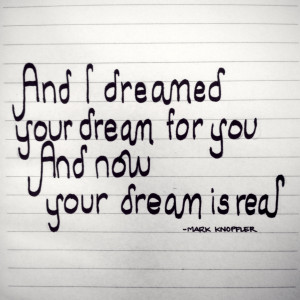 And I dreamed
your dream for you
And now
your dream is real
-MARK KNOPFLER